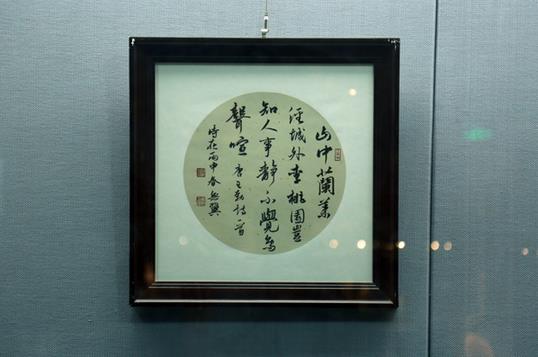 山中蘭葉
徑城外李桃園豈
知人事靜不覺鳥
聲喧 唐王勃詩一首
時在丙申春